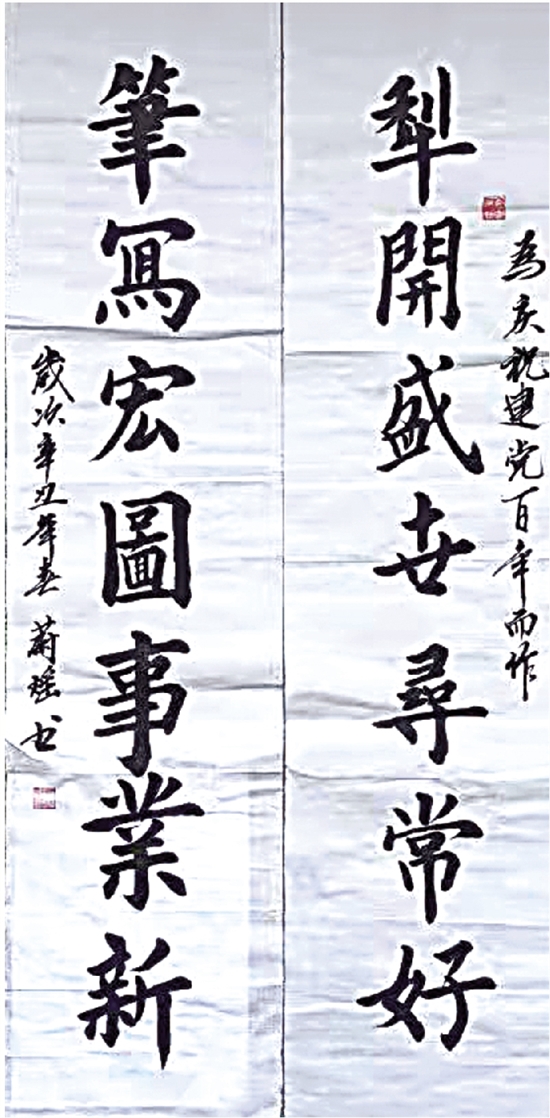 為庆祝建党百年而作
犁開盛世尋常好
筆寫宏圖事業新
歲次辛丑年春 蔚瑶书